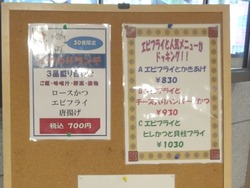 30食限定
3品盛り合わせ
ご飯・味噌汁・野菜・漬物
ロースかつ
エビフライ
唐揚げ
税込 700円
エビフライと人気メニューが
ドッキング!!
A エビフライとかきあげ
¥830
B エビフライと
チーズ入りハンバーグかつ
¥930
C エビフライと
ヒレかつと貝柱フライ
¥1030